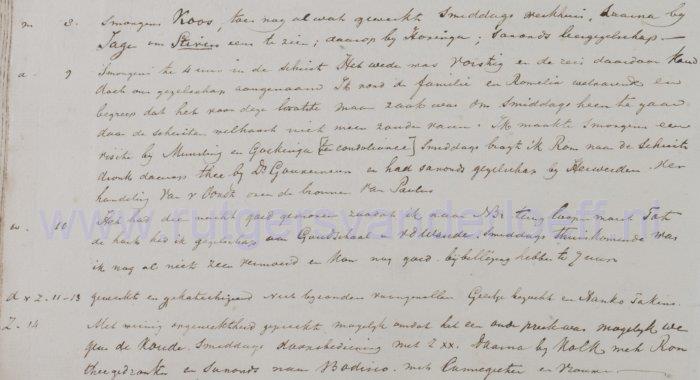 m 8. Smorgens Koos, toen nog al wat gewerkt Smiddags Daarna by
Tage om Stivens eens te zien; daarop by Koninga; Savonds leesgezelschap
d 9 Smorgens te 4 uur in de schuit Het weder was vorstig en de reis daardoor koud
doch ons gezelschap aangenaam Ik vond de familie en Romelia welvarend en
begreep dat het voor deze laatste maar zaak was om Smiddags heen te gaan
daar de schuiten welhaast niet meer zouden varen. Ik maakte Smorgens een
visite by Munsting en Goekinga [te condoleeren] Smiddags bragt ik Rom naar de Schuit
dronk daarna thee by Dr en had Savonds gezelschap by Heiwerden. Ver
handeling van v over de bronnen van Paulus
w. 10 Het had die nacht goed gevroren zoodat ik naar terug loopen moest Tot
de hoek had ik gezelschap van Goudschaal Smiddags thuiskomende was
ik nog al niet zeer vermoeid en kon nog goed bijbellezing hebben te 7 uur
d v Z. 11-13 gewerkt en gekatechiseerd Niet bezonders voorgevallen Geertje bezocht en Nanko Takens.
Z. 14 Met weinig opgewektheid gepreekt mogelijk omdat het een oude preek was mogelyk we
gens de koude. Smiddags 2 xx. Daarna by Kolk met Rom
thee gedronken en Savonds naar Bodisco. met Cannegieter en Vrouw
www.rutgersvanderloeff.nl